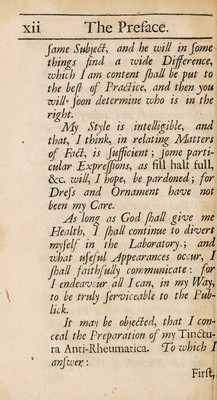 xii The Preface.
ſame Subject, and he will in ſome
things find a wide Difference,
which I am content ſhall be put to
the beſt of Practice, and then you
will ſoon determine who is in the
right.
My Style is intelligible, and
that, I think, in relating Matters
of Fact, is ſufficient; ſome parti-
cular Expreſſions, as fill half full,
&c. will, I hope, be pardoned; for
Dreſs and Ornament have not
been my Care.
As long as God ſhall give me
Health, I ſhall continue to divert
myſelf in the Laboratory; and
what uſeful Appearances occur, I
ſhall faithfully communicate: for
I endeavour all I can, in my Way,
to be truly ſerviceable to the Pub-
lick.
It may be objected, that I con-
ceal the Preparation of my Tinctu-
ra Anti-Rheumatica. To which I
anſwer:
Firſt,